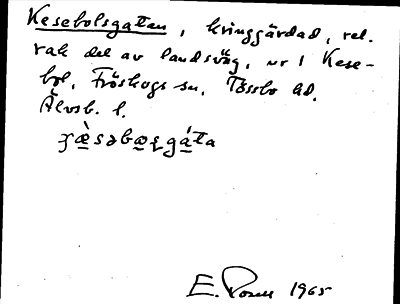 Kesebolsgatan, kringgärdad, rel.
rak del av landsväg, nr 1 Kese-
bol, Fröskogs sn, Tössbo hd,
Älvsb. l.
E. Rosell 1965